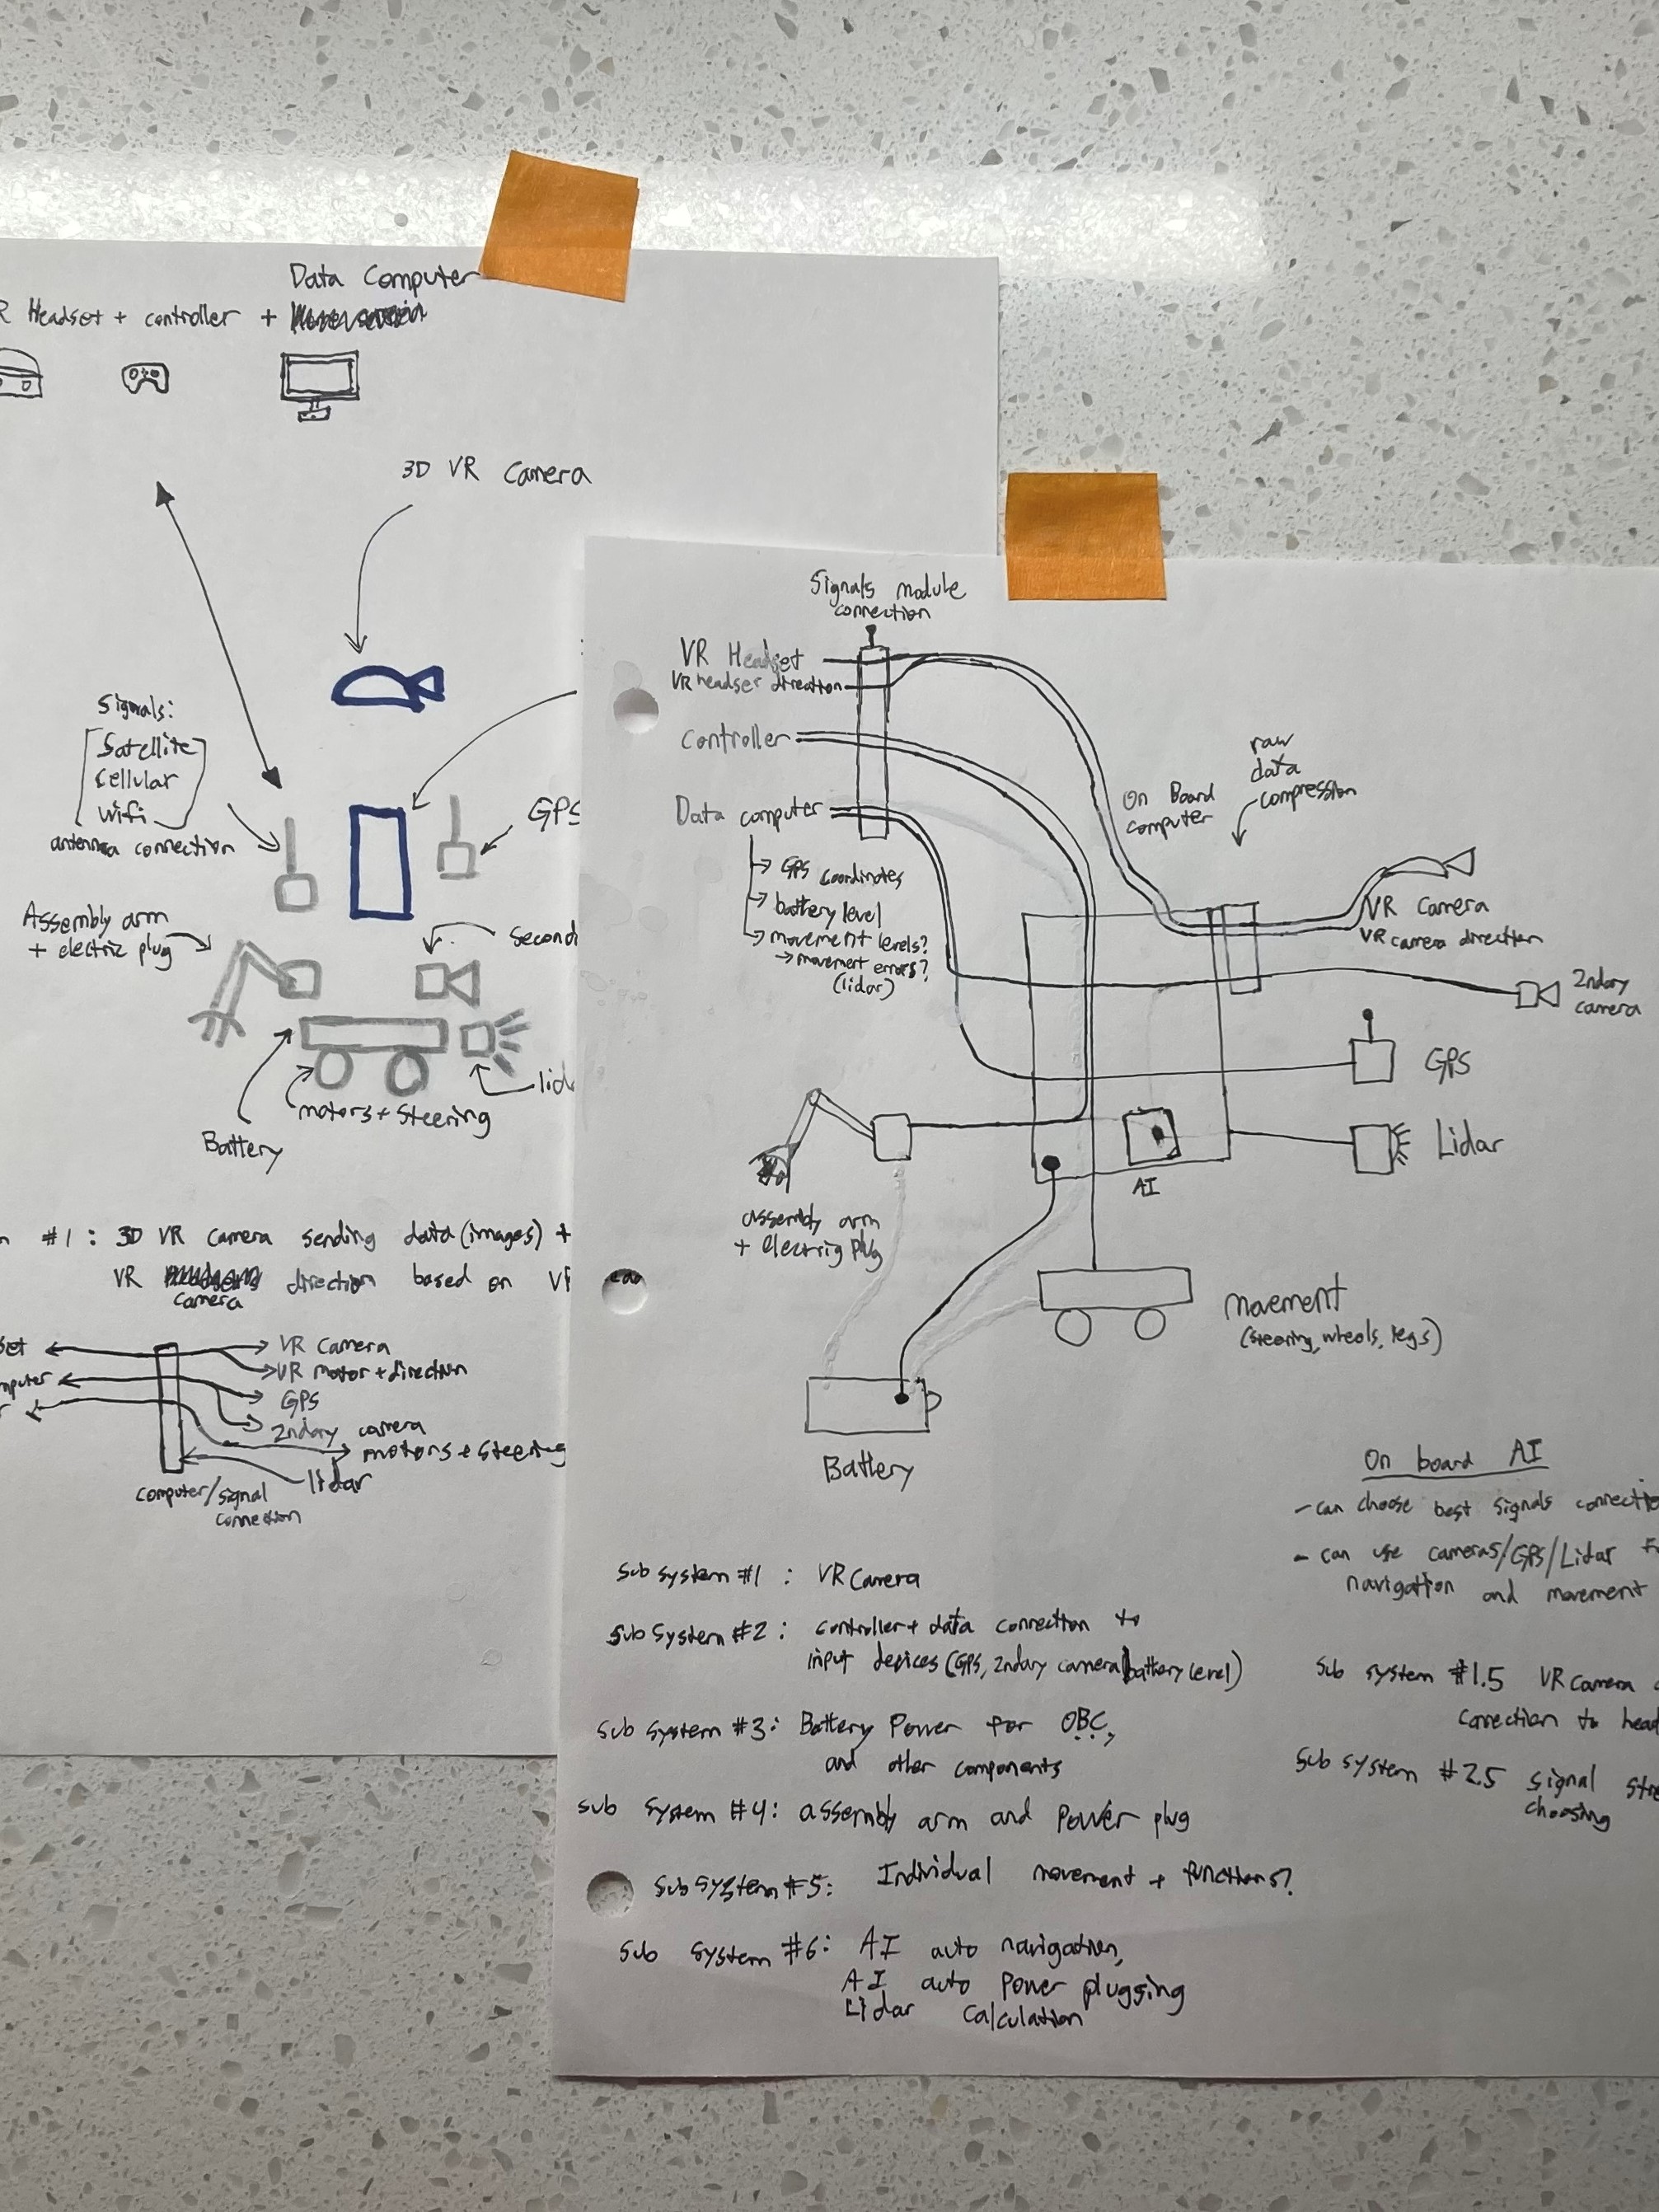 Data Computer
R Headset + controller +
3D VR Camera
Signals:
Satellite
Cellular
Wifi
antenna connection
GPS
Assembly arm
+ electric plug
Second
lid
motors + Steering
Battery
#1 : 3D VR Camera sending data (images) +
VR direction based on
camera
set
VR Camera
VR motor + direction
mputer
GPS
2ndary camera
motors + Steering
lidar
computer/signal
connection
Signals module
connection
VR Headset
VR headser direction
Controller
Data computer
→ GPS coordinates
→ battery level
→ movement levels?
→ movement errors?
(lidar)
On Board
computer
raw
data
compression
VR Camera
VR camera direction
2ndary
camera
GPS
Lidar
AI
assembly arm
+ electrig plug
movement
(steering, wheels, legs)
Battery
On board AI
- can choose best signals connectio
- can use cameras/GPS/Lidar
navigation and movement
Sub System #1 : VR Camera
Sub System #2 : controller + data connection to
input devices (GPS, 2ndary camera, battery level)
Sub System #1.5 VR Camera
connection to head
Sub System #3: Battery Power for OBC,
and other components
Sub System #2.5 Signal stre
choosing
Sub System #4: assembly arm and Power plug
Sub System #5: Individual movement + functions?
Sub System #6: AI auto navigation,
AI auto Power plugging
Lidar Calculation